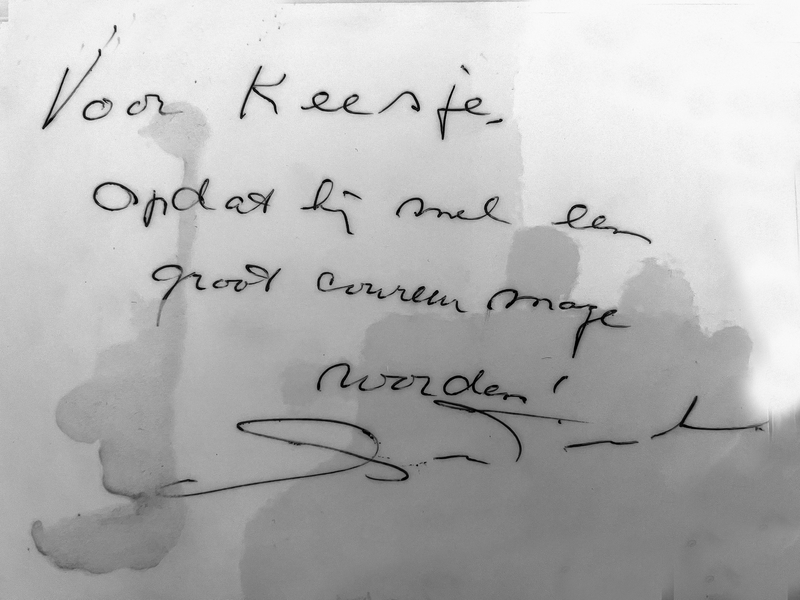 Voor Keesje,
Opdat hij snel een
groot coureur moge
worden!